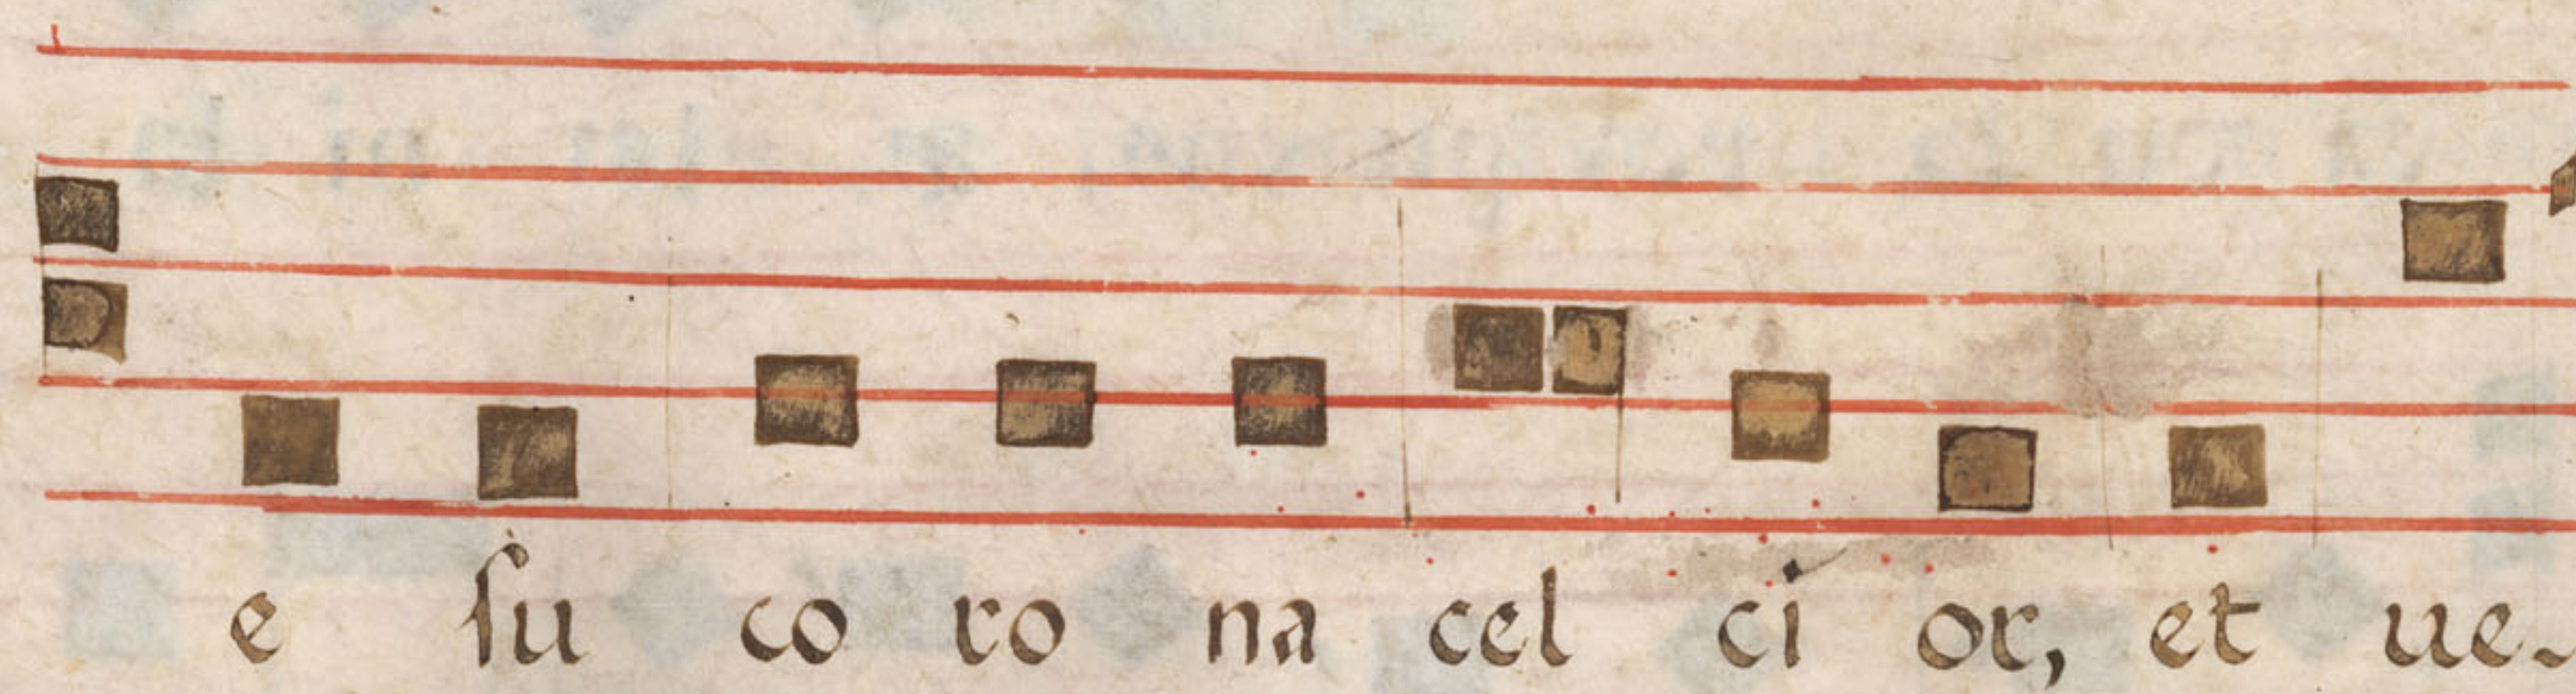 e ſu co ro na cel ci or, et ue-